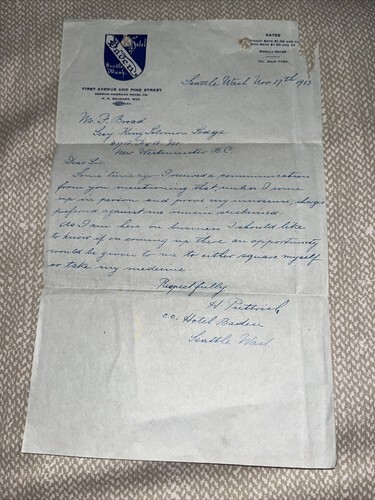 Hotel
Baden
Seattle
Wash.
RATES
FIRST AVENUE AND PINE STREET
Seattle Wash Nov 19th 1913
Mr F. Broad
Secy King Solomon Lodge
New Westminster B.C.
Dear Sir,
Some time ago I received a communication
from you mentioning that unless I come
up in person and prove my innocence, charges
preferred against me remain
As I am here on business I should like
to know if on coming up there an opportunity
would be given to me to either square myself
or take my medecine
Respectfully
H.
c.o. Hotel Baden
Seattle Wash.